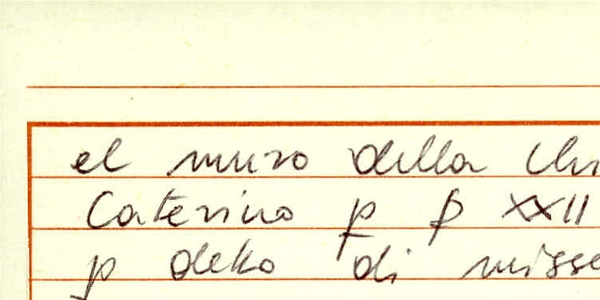 el muro della
Caterina p p XXII
p detto di